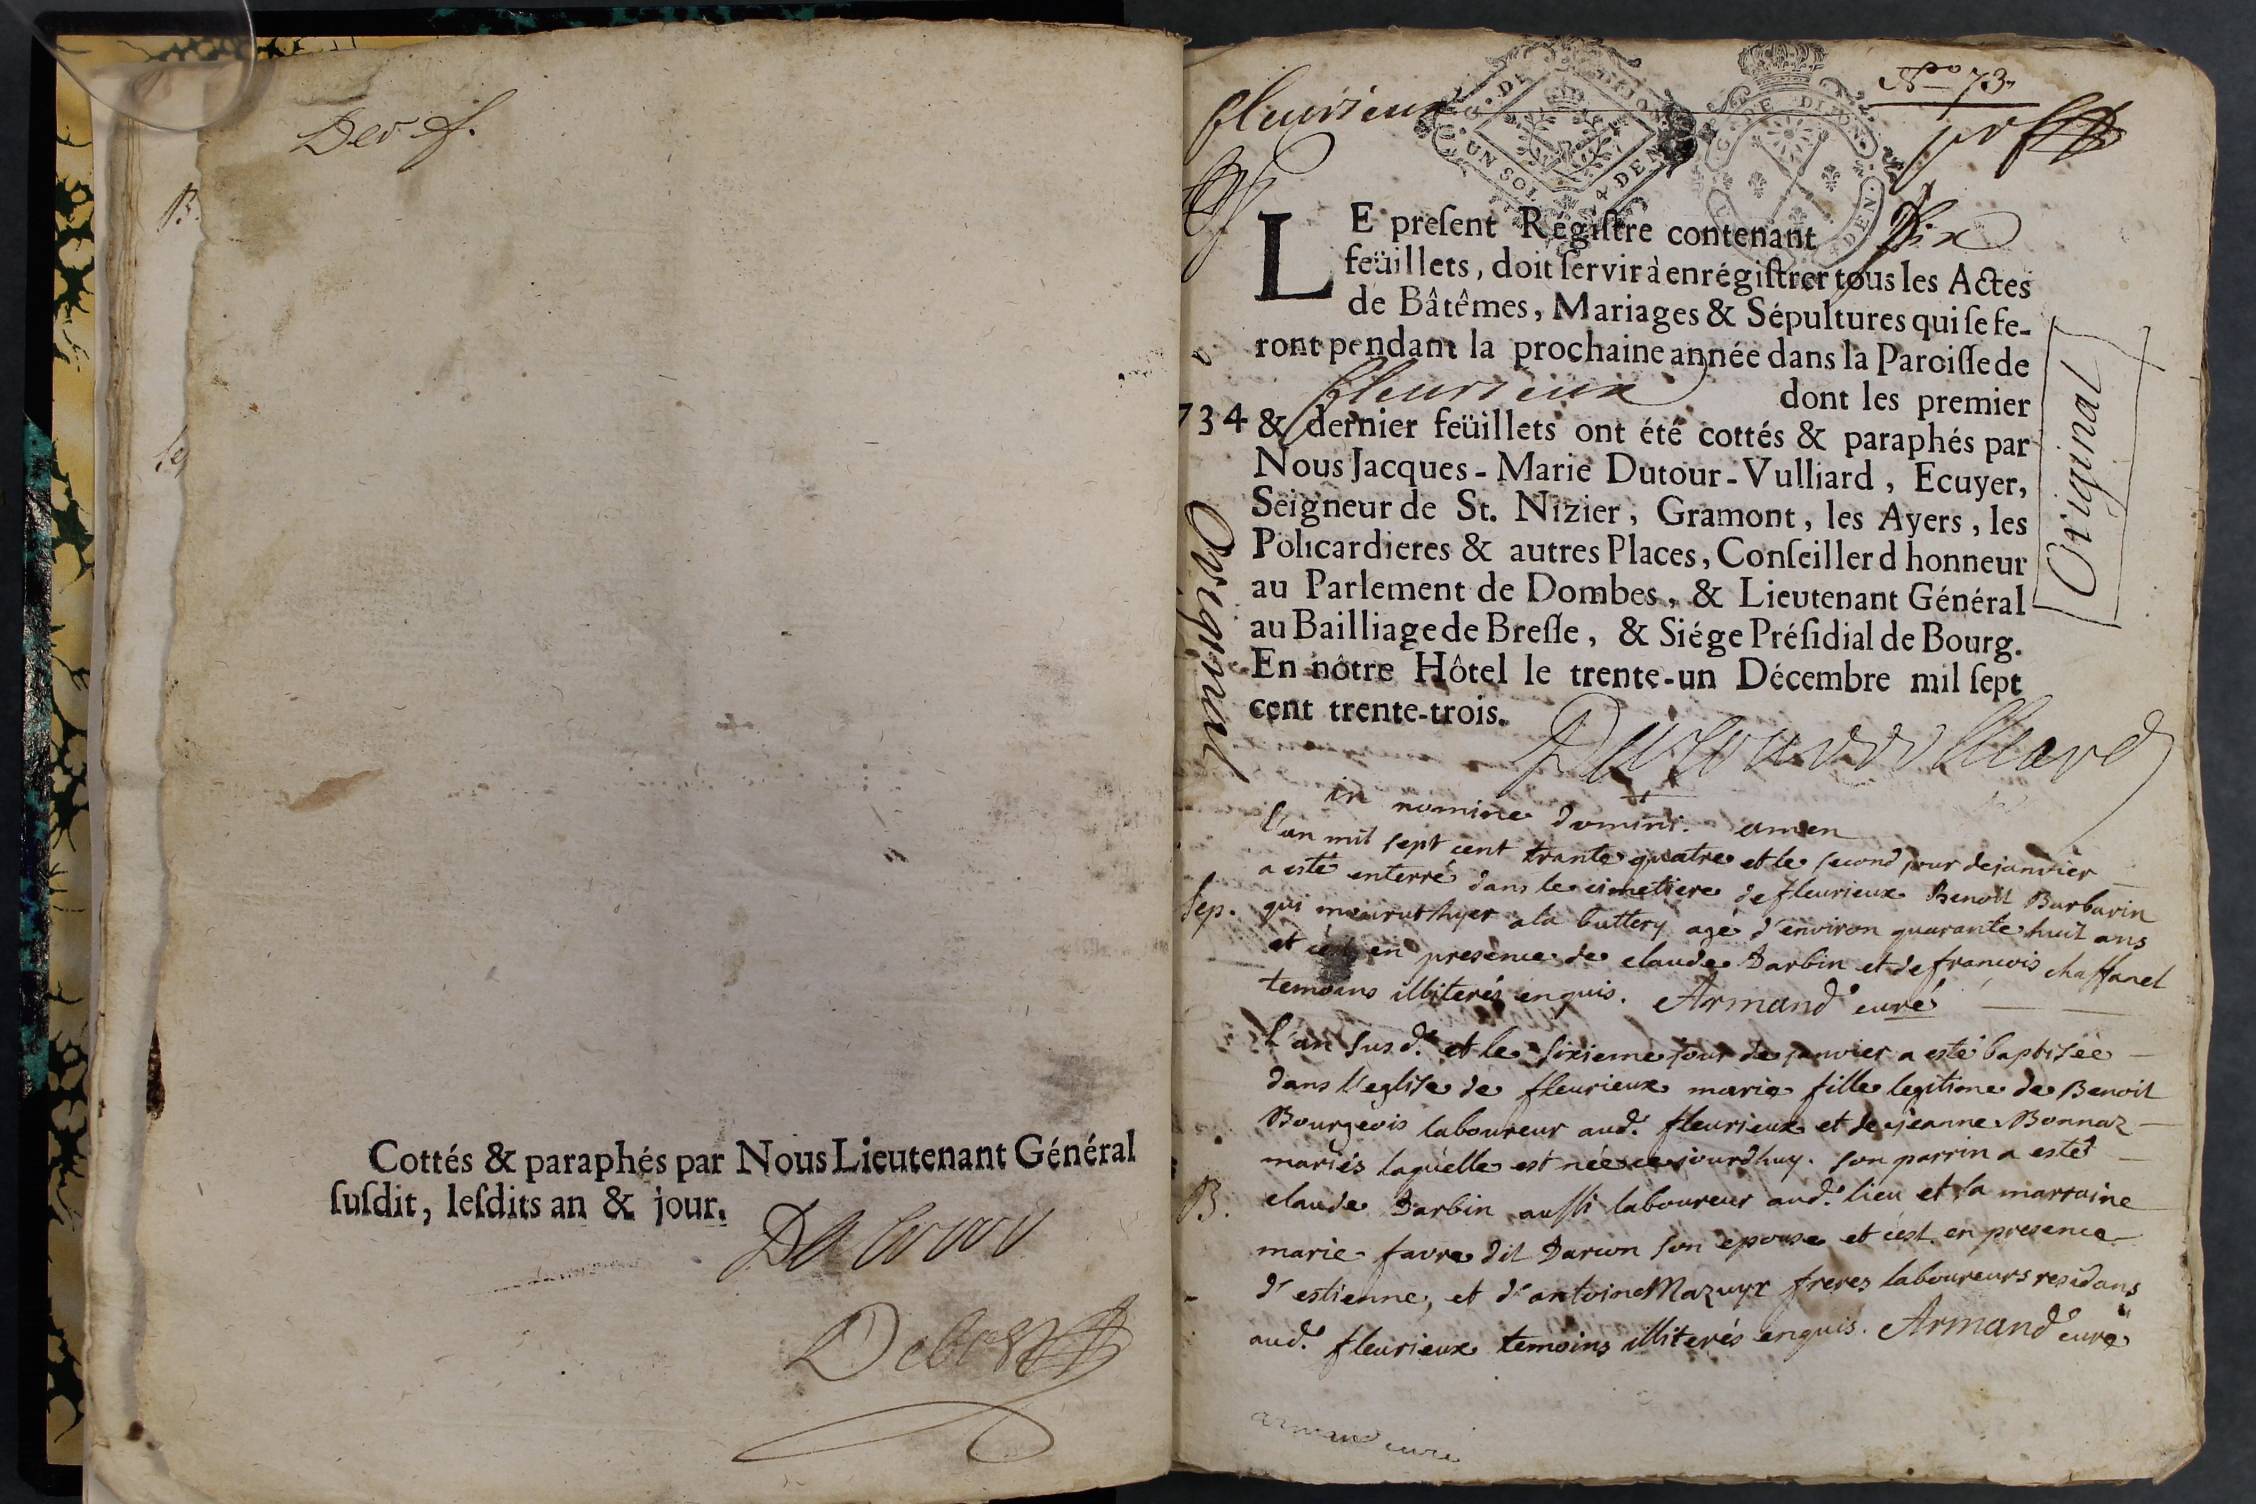 Der f.
Cottés & paraphés par Nous Lieutenant Général
ſuſdit, leſdits an & jour.
Nº 73.
fleurieux
G. DE DIJON
UN SOL 4 DEN
G. DE DIJON
DEN.
pr f
LE preſent Régiſtre contenant Dix
feüillets, doit ſervir à enrégiſtrer tous les Actes
de Bâtêmes, Mariages & Sépultures qui ſe fe-
ront pendant la prochaine année dans la Paroiſſe de
fleurieux dont les premier
734 & dernier feüillets ont été cottés & paraphés par
Nous Jacques-Marie Dutour-Vulliard, Ecuyer,
Seigneur de St. Nizier, Gramont, les Ayers, les
Policardieres & autres Places, Conſeiller d honneur
au Parlement de Dombes, & Lieutenant Général
au Bailliage de Breſſe, & Siége Préſidial de Bourg.
En nôtre Hôtel le trente-un Décembre mil ſept
cent trente-trois.
Original
Original
Dutourvulliard
in nomine domini. amen
l'an mil sept cent trante quatre et le second jour de janvier
a esté enterré dans le cimetiere de fleurieux Benoit Barbarin
Sep. qui mourut hyer a la buttery agé d'environ quarante huit ans
et c'est en presence de claude Darbin et de francois chaffanel
temoins illiterés enquis. Armand curé
l'an susd. et le sixieme jour de janvier a esté baptisée
dans l'eglise de fleurieux marie fille legitime de Benoit
Bourgeois laboureur aud. fleurieux et de jeanne Bonnaz
mariés laquelle est née ce jourdhuy. son parrin a esté
B. claude Darbin aussi laboureur aud. lieu et sa marraine
marie favre dit Darcon son epouse et c'est en presence
d'estienne, et d'antoine Mazuyr freres laboureurs residans
aud. fleurieux temoins illiterés enquis. Armand curé
armand curé